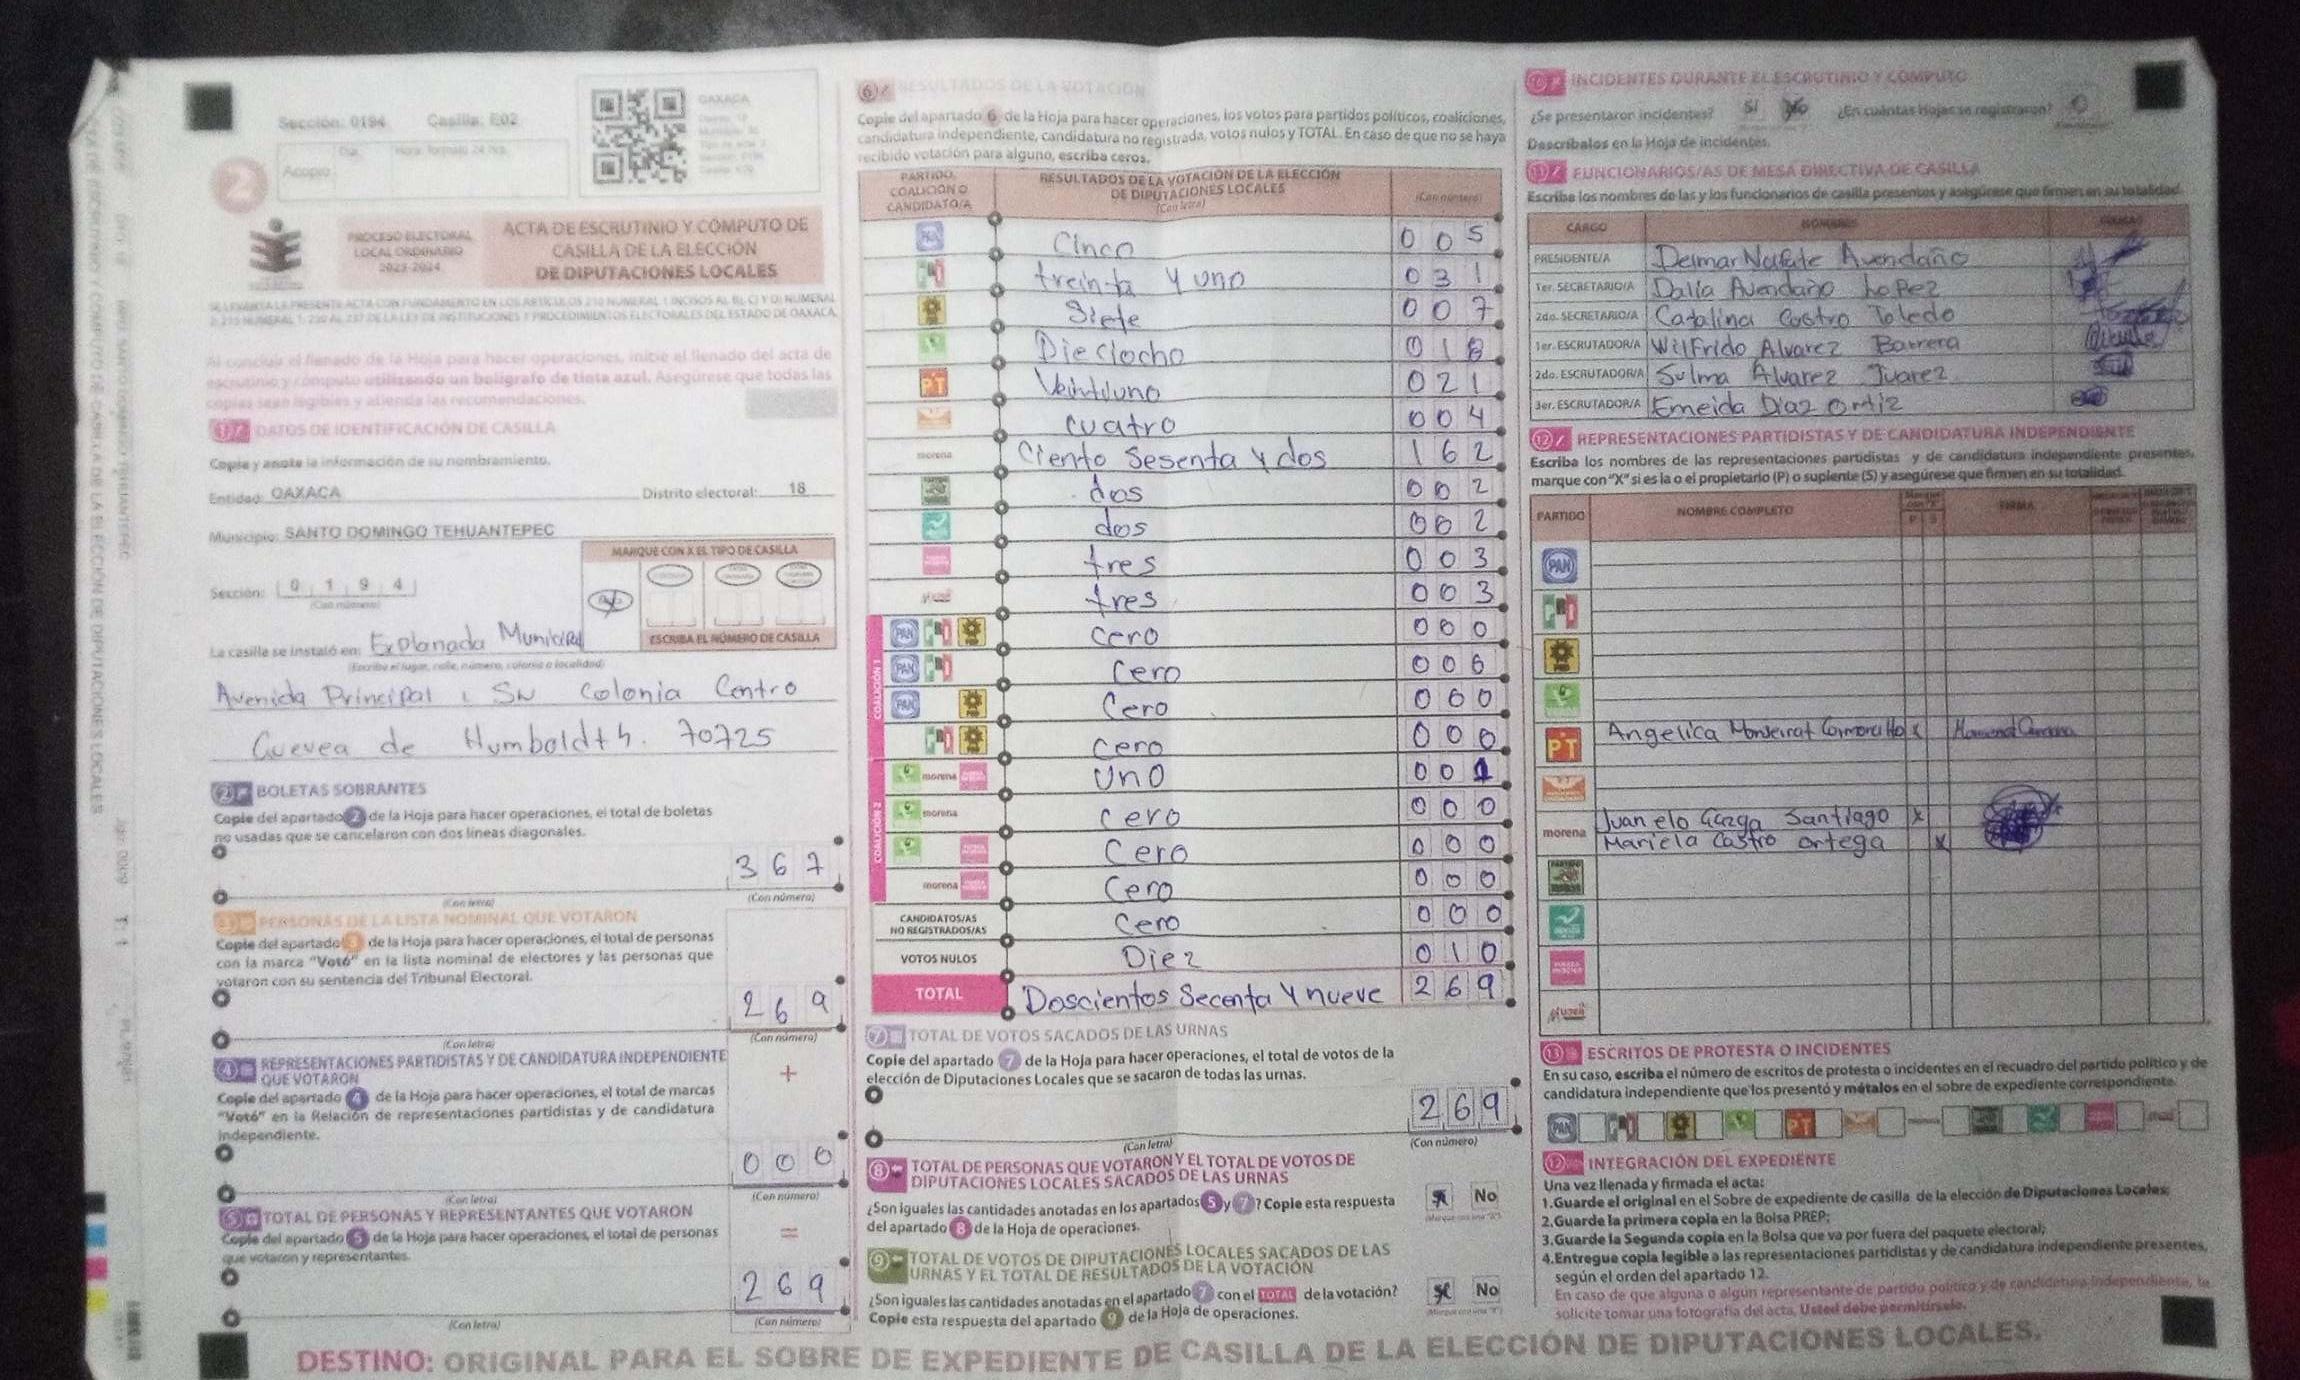 Sección: 0194 Casilla: E02
OAXACA
Acopio
2
PROCESO ELECTORAL
LOCAL ORDINARIO
2023-2024
ACTA DE ESCRUTINIO Y CÓMPUTO DE
CASILLA DE LA ELECCIÓN
DE DIPUTACIONES LOCALES
SE LEVANTA LA PRESENTE ACTA CON FUNDAMENTO EN LOS ARTÍCULOS
Al concluir el llenado de la Hoja para hacer operaciones, inicie el llenado del acta de
escrutinio y cómputo utilizando un bolígrafo de tinta azul. Asegúrese que todas las
copias sean legibles y atienda las recomendaciones.
1 DATOS DE IDENTIFICACIÓN DE CASILLA
Copie y anote la información de su nombramiento.
Entidad: OAXACA Distrito electoral: 18
Municipio: SANTO DOMINGO TEHUANTEPEC
MARQUE CON X EL TIPO DE CASILLA
Sección: 0 1 9 4
(Con número)
ESCRIBA EL NÚMERO DE CASILLA
La casilla se instaló en: Explanada Municipal
(Escriba el lugar, calle, número, colonia o localidad)
Avenida Principal, SN Colonia Centro
Guevea de Humboldth. 70725
2 BOLETAS SOBRANTES
Copie del apartado 2 de la Hoja para hacer operaciones, el total de boletas
no usadas que se cancelaron con dos líneas diagonales.
367
(Con letra) (Con número)
3 PERSONAS DE LA LISTA NOMINAL QUE VOTARON
Copie del apartado 3 de la Hoja para hacer operaciones, el total de personas
con la marca "Votó" en la lista nominal de electores y las personas que
votaron con su sentencia del Tribunal Electoral.
269
(Con letra) (Con número)
4 REPRESENTACIONES PARTIDISTAS Y DE CANDIDATURA INDEPENDIENTE
QUE VOTARON
+
Copie del apartado 4 de la Hoja para hacer operaciones, el total de marcas
"Votó" en la Relación de representaciones partidistas y de candidatura
independiente.
000
(Con letra) (Con número)
5 TOTAL DE PERSONAS Y REPRESENTANTES QUE VOTARON
=
Copie del apartado 5 de la Hoja para hacer operaciones, el total de personas
que votaron y representantes.
269
(Con letra) (Con número)
6 RESULTADOS DE LA VOTACIÓN
Copie del apartado 6 de la Hoja para hacer operaciones, los votos para partidos políticos, coaliciones,
candidatura independiente, candidatura no registrada, votos nulos y TOTAL. En caso de que no se haya
recibido votación para alguno, escriba ceros.
PARTIDO, COALICIÓN O CANDIDATO/A
RESULTADOS DE LA VOTACIÓN DE LA ELECCIÓN
DE DIPUTACIONES LOCALES
(Con letra) (Con número)
PAN Cinco 005
PRI treinta y uno 031
PRD Siete 007
Dieciocho 018
PT Veintiuno 021
cuatro 004
morena Ciento Sesenta y dos 162
dos 002
dos 002
tres 003
tres 003
COALICIÓN 1
PAN PRI PRD cero 000
PAN PRI cero 000
PAN PRD Cero 000
PRI PRD cero 000
COALICIÓN 2
morena Uno 001
morena cero 000
Cero 000
morena Cero 000
CANDIDATOS/AS NO REGISTRADOS/AS Cero 000
VOTOS NULOS Diez 010
TOTAL Doscientos Secenta y nueve 269
7 TOTAL DE VOTOS SACADOS DE LAS URNAS
Copie del apartado 7 de la Hoja para hacer operaciones, el total de votos de la
elección de Diputaciones Locales que se sacaron de todas las urnas.
269
(Con letra) (Con número)
8 TOTAL DE PERSONAS QUE VOTARON Y EL TOTAL DE VOTOS DE
DIPUTACIONES LOCALES SACADOS DE LAS URNAS
¿Son iguales las cantidades anotadas en los apartados 5 y 7? Copie esta respuesta
del apartado 8 de la Hoja de operaciones.
No
9 TOTAL DE VOTOS DE DIPUTACIONES LOCALES SACADOS DE LAS
URNAS Y EL TOTAL DE RESULTADOS DE LA VOTACIÓN
¿Son iguales las cantidades anotadas en el apartado 7 con el TOTAL de la votación?
Copie esta respuesta del apartado 9 de la Hoja de operaciones.
No
INCIDENTES DURANTE EL ESCRUTINIO Y CÓMPUTO
¿Se presentaron incidentes? Sí No ¿En cuántas Hojas se registraron?
Descríbalos en la Hoja de incidentes.
11 FUNCIONARIOS/AS DE MESA DIRECTIVA DE CASILLA
Escriba los nombres de las y los funcionarios de casilla presentes y asegúrese que firmen en su totalidad.
CARGO NOMBRE FIRMA
PRESIDENTE/A Delmar Nafate Avendaño
1er. SECRETARIO/A Dalia Avendaño Lopez
2do. SECRETARIO/A Catalina Castro Toledo
1er. ESCRUTADOR/A Wilfrido Alvarez Barrera
2do. ESCRUTADOR/A Sulma Alvarez Juarez
3er. ESCRUTADOR/A Emeida Diaz Ortiz
12 REPRESENTACIONES PARTIDISTAS Y DE CANDIDATURA INDEPENDIENTE
Escriba los nombres de las representaciones partidistas y de candidatura independiente presentes,
marque con "X" si es la o el propietario (P) o suplente (S) y asegúrese que firmen en su totalidad.
PARTIDO NOMBRE COMPLETO P S FIRMA
PAN
PRI
PRD
PT Angelica Monserrat x
morena Juanelo Santiago x
Mariela Castro Ortega x
13 ESCRITOS DE PROTESTA O INCIDENTES
En su caso, escriba el número de escritos de protesta o incidentes en el recuadro del partido político y de
candidatura independiente que los presentó y métalos en el sobre de expediente correspondiente.
PAN PT
INTEGRACIÓN DEL EXPEDIENTE
Una vez llenada y firmada el acta:
1.Guarde el original en el Sobre de expediente de casilla de la elección de Diputaciones Locales;
2.Guarde la primera copia en la Bolsa PREP;
3.Guarde la Segunda copia en la Bolsa que va por fuera del paquete electoral;
4.Entregue copia legible a las representaciones partidistas y de candidatura independiente presentes,
según el orden del apartado 12.
En caso de que alguna o algún representante de partido político y de candidatura independiente, le
solicite tomar una fotografía del acta, Usted debe permitírselo.
DESTINO: ORIGINAL PARA EL SOBRE DE EXPEDIENTE DE CASILLA DE LA ELECCIÓN DE DIPUTACIONES LOCALES.